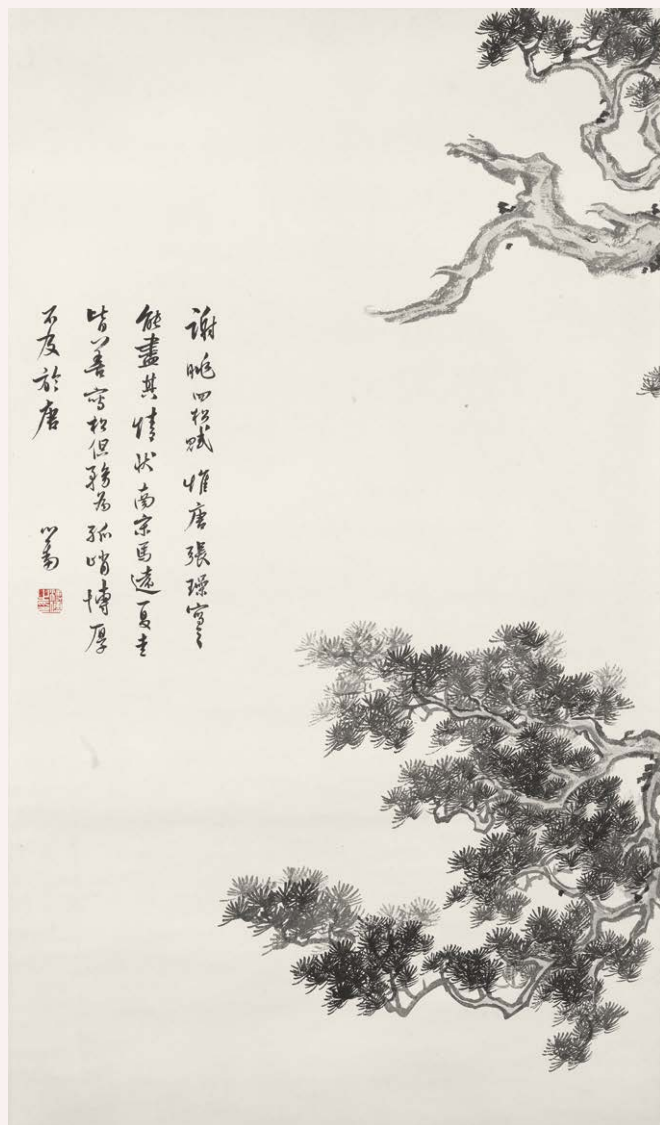 謝眺四松賦惟唐張璪寫之
能盡其情狀南宋馬遠夏圭
皆善寫松但務為孤峭博厚
不及於唐
心畬